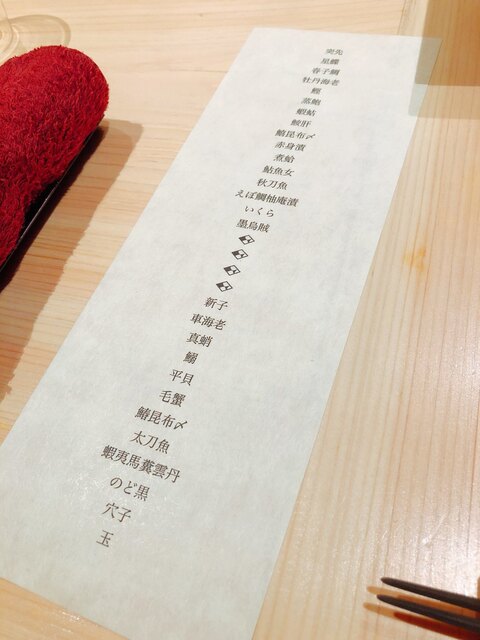 突先
星鰈
春子鯛
牡丹海老
鰹
蒸鮑
蝦蛄
鮟肝
鰆昆布〆
赤身漬
煮蛤
鮎魚女
秋刀魚
えぼ鯛柚庵漬
いくら
墨烏賊
新子
車海老
真蛸
鰯
平貝
毛蟹
鰆昆布〆
太刀魚
蝦夷馬糞雲丹
のど黒
穴子
玉